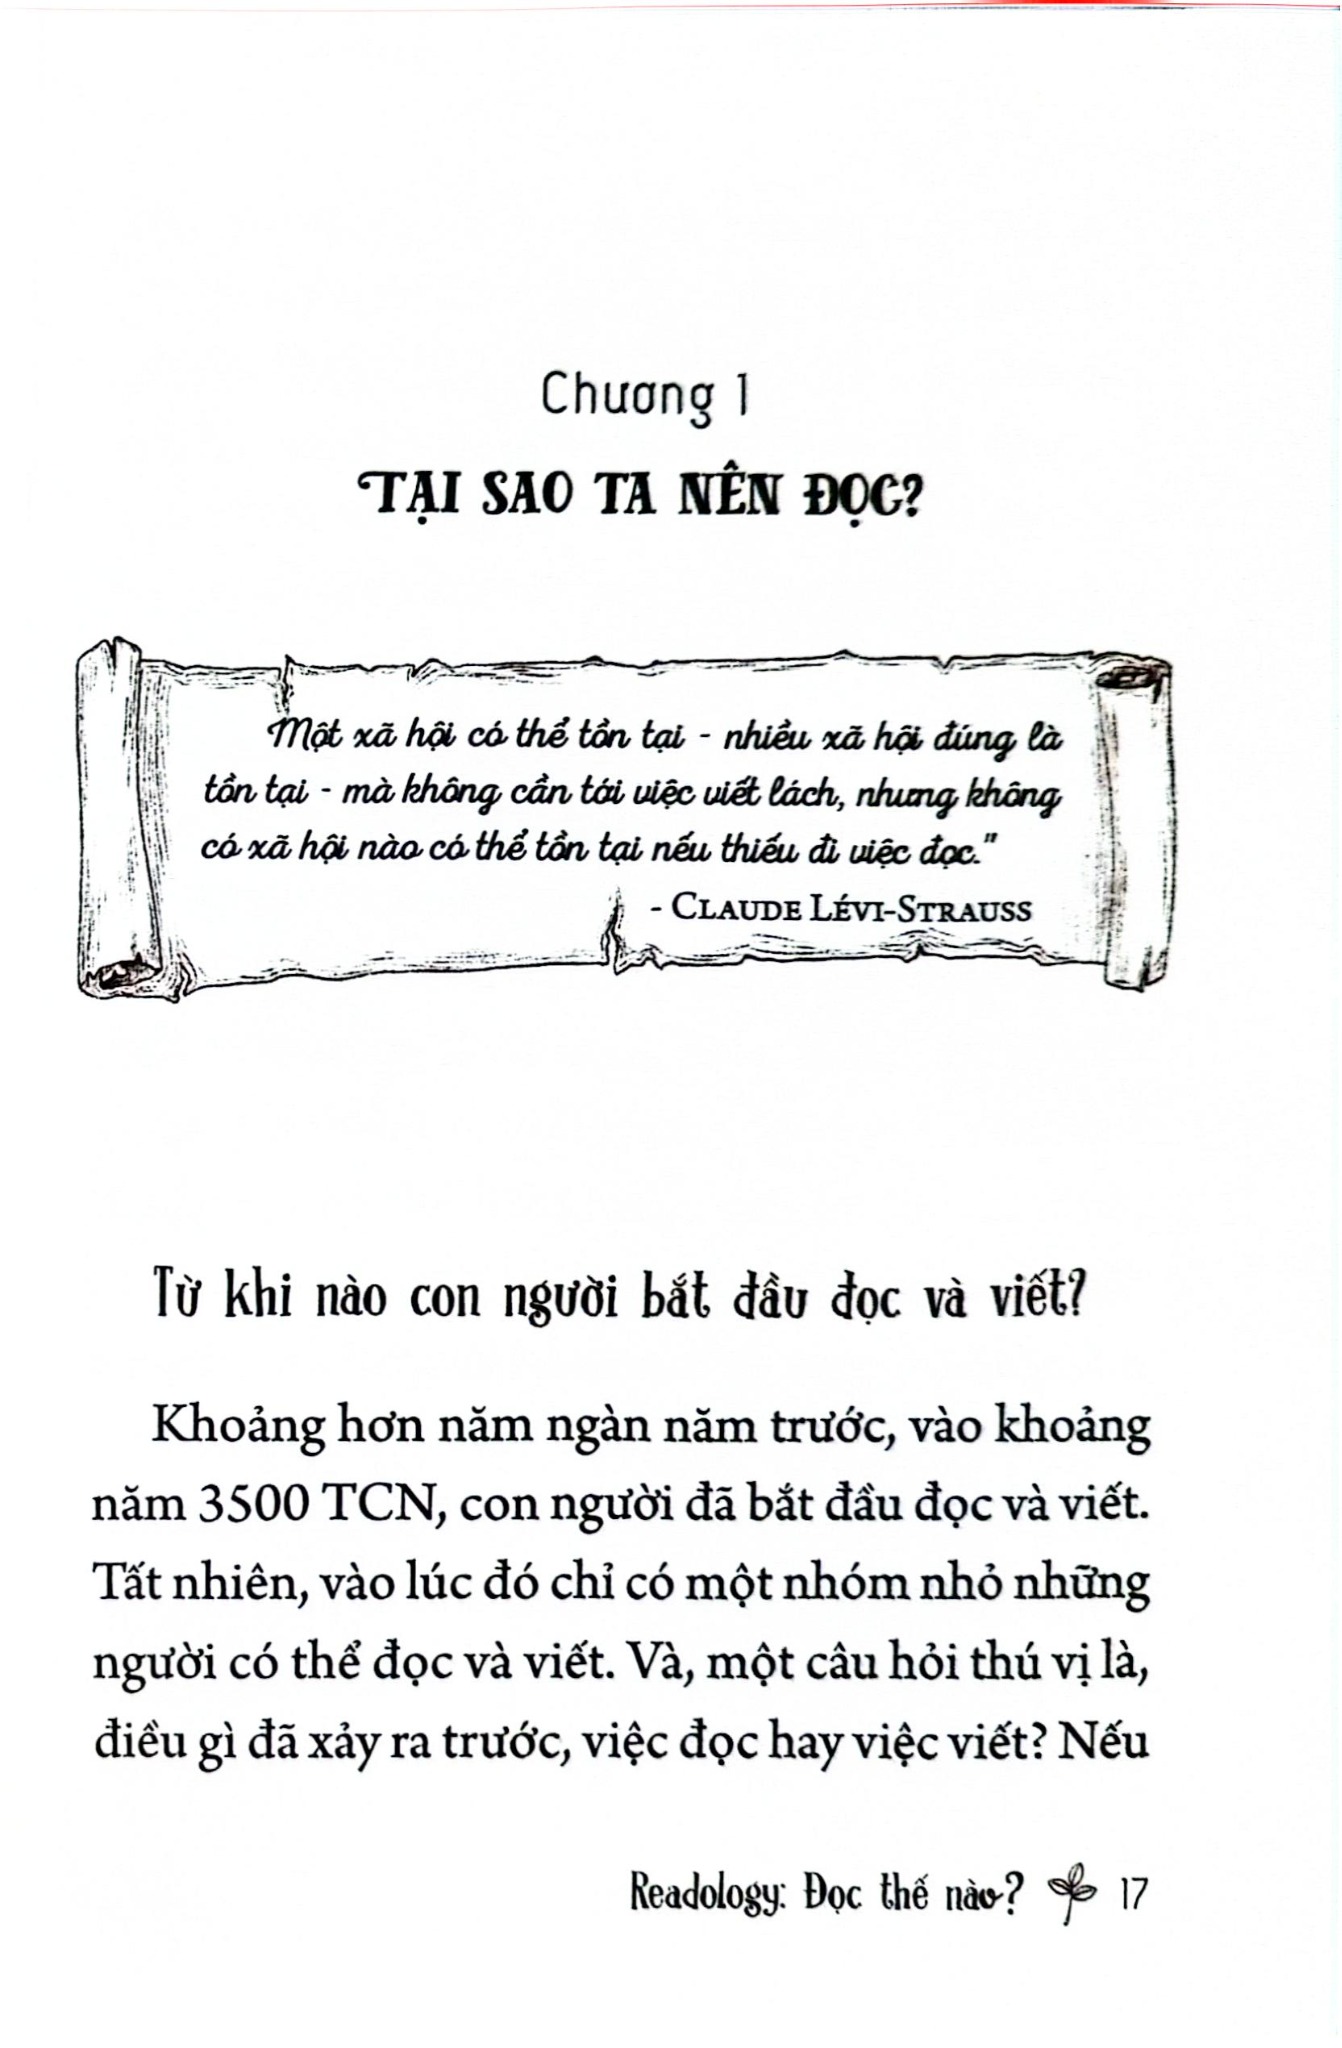 Chương 1
TẠI SAO TA NÊN ĐỌC?
Một xã hội có thể tồn tại - nhiều xã hội đúng là
tồn tại - mà không cần tới việc viết lách, nhưng không
có xã hội nào có thể tồn tại nếu thiếu đi việc đọc."
- CLAUDE LÉVI-STRAUSS
Từ khi nào con người bắt đầu đọc và viết?
Khoảng hơn năm ngàn năm trước, vào khoảng
năm 3500 TCN, con người đã bắt đầu đọc và viết.
Tất nhiên, vào lúc đó chỉ có một nhóm nhỏ những
người có thể đọc và viết. Và, một câu hỏi thú vị là,
điều gì đã xảy ra trước, việc đọc hay việc viết? Nếu
Readology: Đọc thế nào? 17